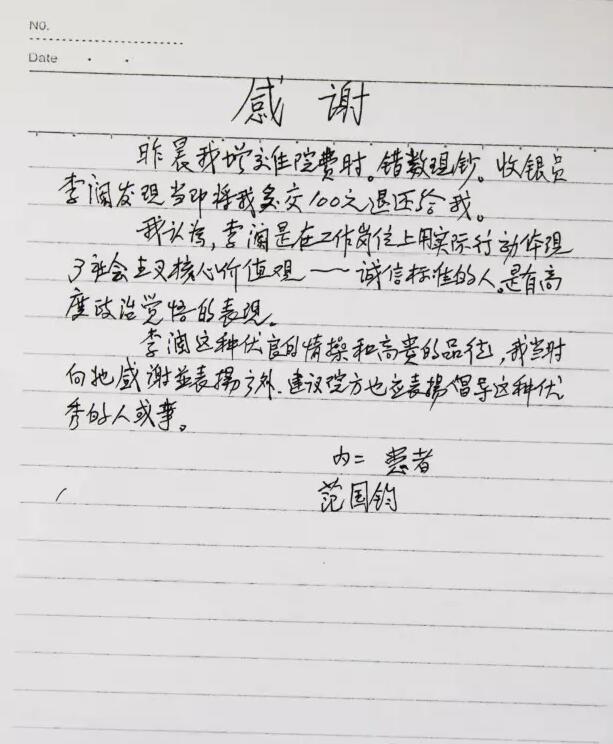 No.
Date
感 谢
昨晨我增交住院费时。错数现钞。收银员
李润发现当即将我多交100元退还给我。
我认为,李润是在工作岗位上用实际行动体现
了社会主义核心价值观——诚信标准的人。是有高
度政治觉悟的表现。
李润这种优良的情操和高贵的品德,我当时
向她感谢并表扬了外.建议院方也应表扬倡导这种优
秀的人或事。
内二 患者
范国钧